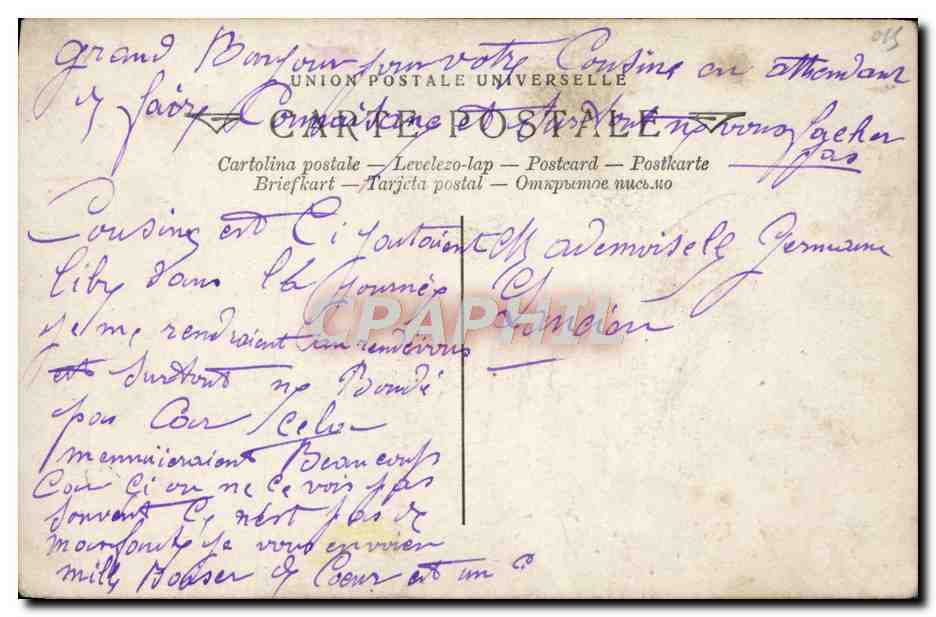 015
grand Bonjour pour votre Cousine en attendant
UNION POSTALE UNIVERSELLE
de faire Connaissance et surtout ne vous facher
CARTE POSTALE
pas
Cartolina postale — Levelezo-lap — Postcard — Postkarte
Briefkart — Tarjeta postal — Открытое письмо
Cousine est Ci jautaient
libre dans la Journée
je me rendraient au rendévous
et surtout ne Boudé
pas Car Cela
mennuieraient Beaucoup
Car Ci on ne ce vois pas
souvent Ce nést pas de
ma faute je vous envoien
mille Baiser de Coeur est un
Mademoiselle Germaine
CPAPHIL